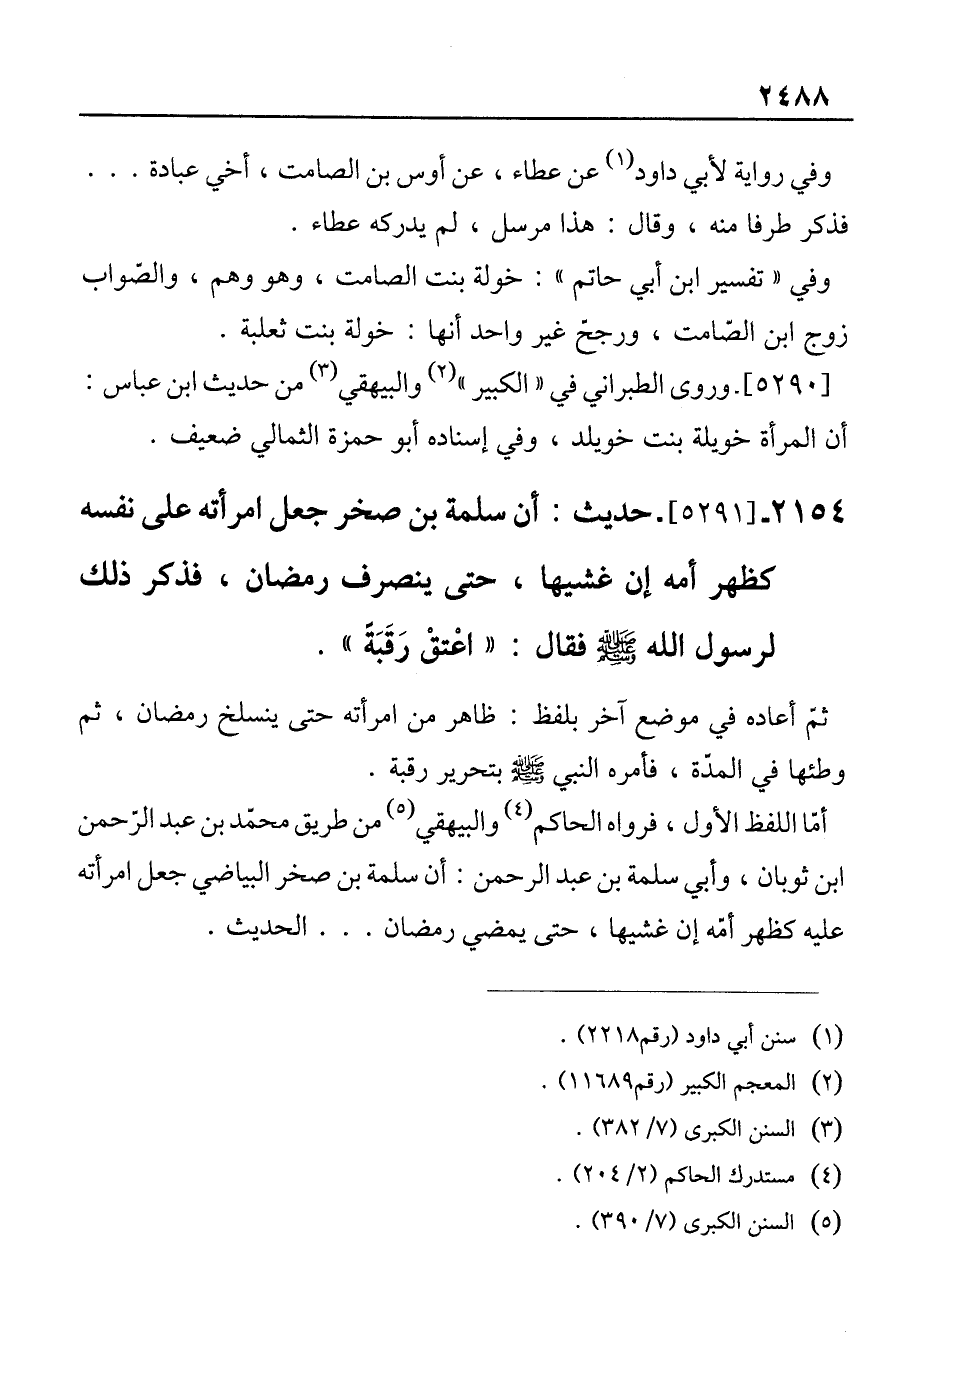 ٢٤٨٨
وفي رواية لأبي داود(١) عن عطاء ، عن أوس بن الصامت ، أخي عبادة . . .
فذكر طرفا منه ، وقال : هذا مرسل ، لم يدركه عطاء .
وفي « تفسير ابن أبي حاتم » : خولة بنت الصامت ، وهو وهم ، والصّواب
زوج ابن الصّامت ، ورجحّ غير واحد أنها : خولة بنت ثعلبة .
[٥٢٩٠]ـ وروى الطبراني في « الكبير »(٢) والبيهقي(٣) من حديث ابن عباس :
أن المرأة خويلة بنت خويلد ، وفي إسناده أبو حمزة الثمالي ضعيف .
٢١٥٤ـ [٥٢٩١]ـ حديث : أن سلمة بن صخر جعل امرأته على نفسه
كظهر أمه إن غشيها ، حتى ينصرف رمضان ، فذكر ذلك
لرسول الله ﷺ فقال : « اعْتقْ رَقَبَةً » .
ثمّ أعاده في موضع آخر بلفظ : ظاهر من امرأته حتى ينسلخ رمضان ، ثم
وطئها في المدّة ، فأمره النبي ﷺ بتحرير رقبة .
أمّا اللفظ الأول ، فرواه الحاكم(٤) والبيهقي(٥) من طريق محمّد بن عبد الرّحمن
ابن ثوبان ، وأبي سلمة بن عبد الرحمن : أن سلمة بن صخر البياضي جعل امرأته
عليه كظهر أمّه إن غشيها ، حتى يمضي رمضان . . . الحديث .
(١) سنن أبي داود (رقم٢٢١٨) .
(٢) المعجم الكبير (رقم١١٦٨٩) .
(٣) السنن الكبرى (٧/ ٣٨٢) .
(٤) مستدرك الحاكم (٢/ ٢٠٤) .
(٥) السنن الكبرى (٧/ ٣٩٠) .